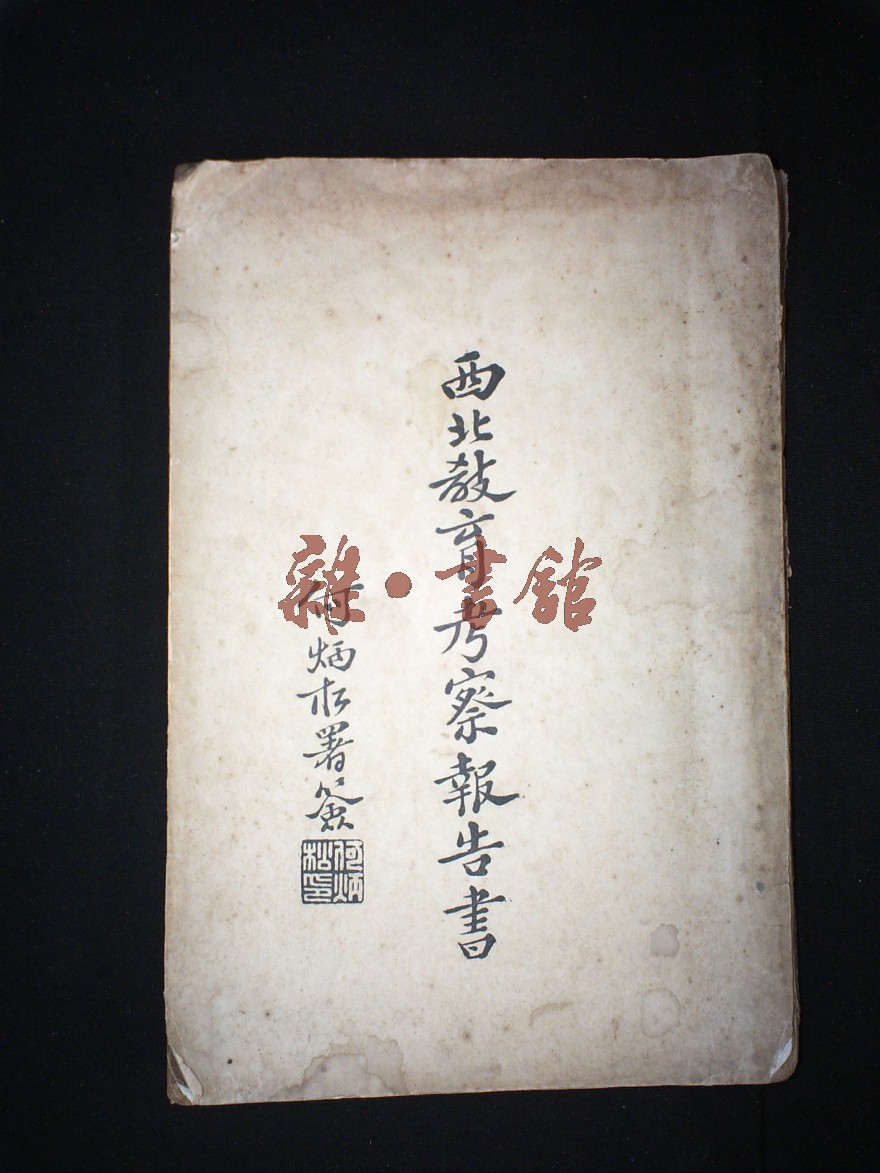 西北教育考察報告書
何炳松署簽
何炳松印
雜·書館